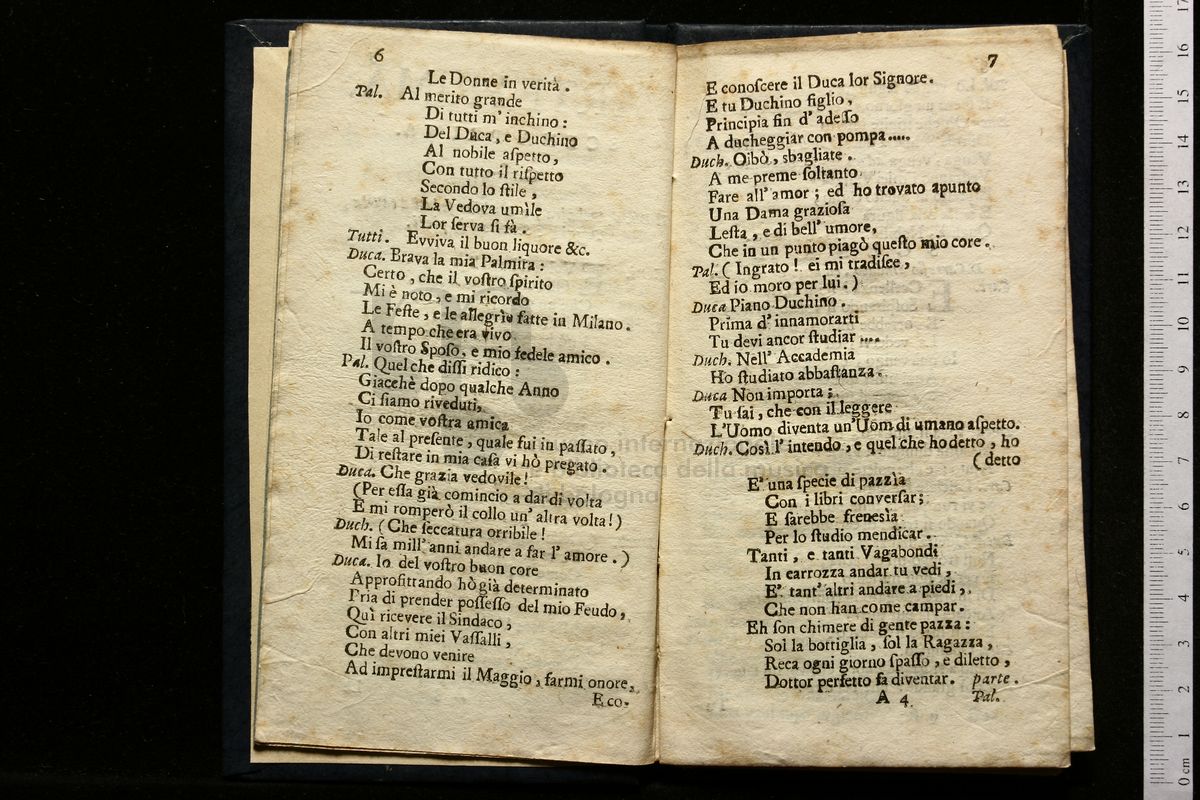 6
Le Donne in verità .
Pal. Al merito grande
Di tutti m' inchino :
Del Duca , e Duchino
Al nobile aſpetto ,
Con tutto il riſpetto
Secondo lo ſtile ,
La Vedova umìle
Lor ſerva ſi fà .
Tutti. Evviva il buon liquore &c.
Duca. Brava la mia Palmira :
Certo , che il voſtro ſpirito
Mi è noto , e mi ricordo
Le Feſte , e le allegrie fatte in Milano .
A tempo che era vivo
Il voſtro Spoſo, e mio fedele amico .
Pal. Quel che diſſi ridico :
Giacchè dopo qualche Anno
Ci ſiamo riveduti,
Io come voſtra amica
Tale al preſente , quale fui in paſſato ,
Di reſtare in mia caſa vi hò pregato .
Duca. Che grazia vedovile !
(Per eſſa già comincio a dar di volta
E mi romperò il collo un' altra volta !)
Duch. ( Che ſeccatura orribile !
Mi ſa mill' anni andare a far l' amore . )
Duca. Io del voſtro buon core
Approfittando hò già determinato
Pria di prender poſſeſſo del mio Feudo ,
Quì ricevere il Sindaco ,
Con altri miei Vaſſalli ,
Che devono venire
Ad impreſtarmi il Maggio , farmi onore,
E co-
7
E conoſcere il Duca lor Signore.
E tu Duchino figlio ,
Principia fin d' adeſſo
A ducheggiar con pompa .....
Duch. Oibò , sbagliate .
A me preme ſoltanto
Fare all' amor ; ed ho trovato apunto
Una Dama grazioſa
Leſta , e di bell' umore,
Che in un punto piagò queſto mio core .
Pal. ( Ingrato ! ei mi tradiſce ,
Ed io moro per lui . )
Duca Piano Duchino .
Prima d' innamorarti
Tu devi ancor ſtudiar ....
Duch. Nell' Accademia
Ho ſtudiato abbaſtanza .
Duca Non importa ;
Tu ſai , che con il leggere
L'Uomo diventa un' Uom di umano aſpetto.
Duch. Così l' intendo , e quel che ho detto , ho
( detto
E' una ſpecie di pazzìa
Con i libri converſar ;
E ſarebbe freneſìa
Per lo ſtudio mendicar .
Tanti , e tanti Vagabondi
In carrozza andar tu vedi ,
E' tant' altri andare a piedi ,
Che non han come campar .
Eh ſon chimere di gente pazza :
Sol la bottiglia , ſol la Ragazza ,
Reca ogni giorno ſpaſſo , e diletto ,
Dottor perfetto fa diventar . parte .
A 4 Pal.